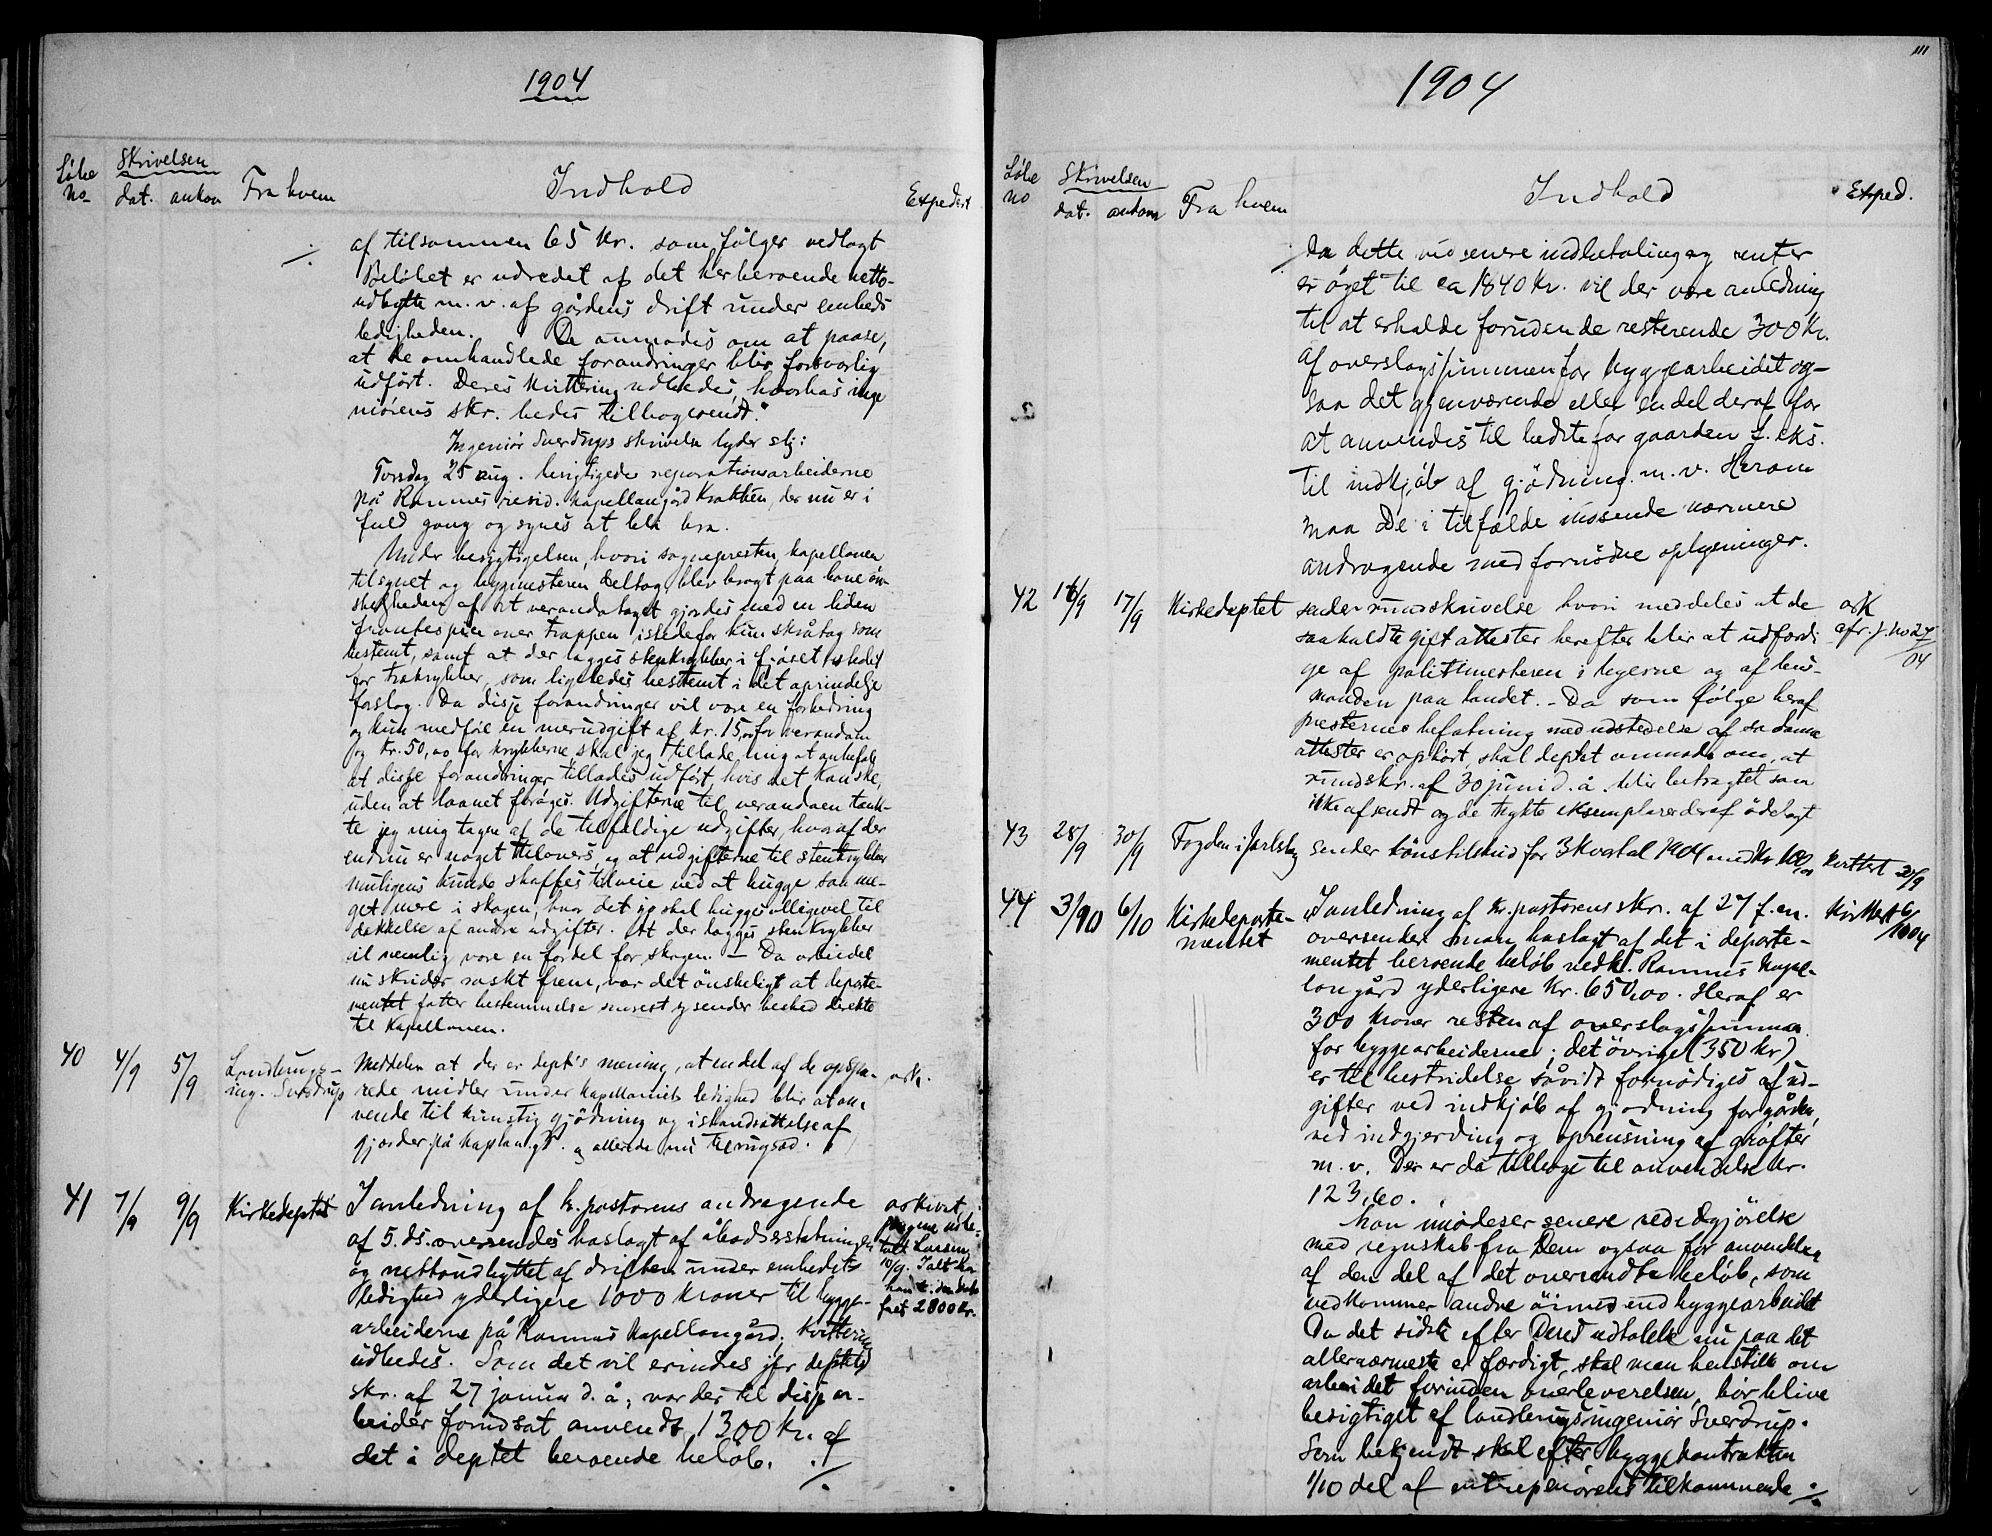 1904
Løbe
no
Skrivelsen
dat. ankom
Fra hvem
Indhold
Expedert
./.
af tilsammen 65 kr. som følger vedlagt
Beløbet er udredet af det her beroende netto-
udbytte m. v. af gårdens drift under embeds
ledigheden. De anmodes om at paase,
at de omhandlede forandringer blir forsvarlig
udført. Deres kvittering udbedes, hvorhos inge
niørens skr. bedes tilbagesendt."
Ingeniør Sverdrups skrivelse lyder slg:
Torsdag 25 aug. besigtigede reparationsarbeiderne
på Ramnes resid. kapellangård Krakken, der nu er i
fuld gang og synes at bli bra.
Under besigtigelsen, hvori sognepresten, kapellanen
tilsynet og bygmesteren deltog, blev bragt paa bane øn-
skeligheden af at verandataget gjordes med en liden
frontespice over trappen istedefor kun skråtag som
bestemt, samt at der lagges stenkrybber i fjøset istedet
for trækrybber, som ligeledes bestemt i det oprindelige
forslag. Da disse forandringer vil være en forbedring
og kun medføre en merudgift af kr. 15,00 for verandaen
og kr. 50,00 for krybberne, skal jeg tillade mig at anbefale
at disse forandringer tillades udført, hvis det kan ske,
uden at laanet forøges. Udgifterne til verandaen tænk-
te jeg mig tagne af de tilfældige udgifter, hvoraf der
endnu er noget tilovers og at udgifterne til stenkrybber
muligens kunde skaffes tilveie ved at hugge saa me-
get mere i skogen, hvor det jo skal hugges alligevel til
dækkelse af andre udgifter. At der lagges stenkrybber
vil nemlig være en fordel for skogen. — Da arbeidet
nu skrider raskt frem, var det ønskeligt at departe-
mentet fatter bestemmelse snarest og sender besked direkte
til Kapellanen.
40 4/9 5/9 Landbrugs-
ing. Sverdrup
Meddeler at der er dept's mening, at en del af de opspa-
rede midler under Kapellaniets ledighed blir at an-
vende til kunstig gjødning og istandsættelse af
gjærder på kaplangd. og allerede nu til rugsæd.
ark.
41 7/9 9/9 Kirkedeptet
I anledning af hr. pastorens andragende
af 5. ds. oversendes haslagt af åbodserstatningen
og nettoudbyttet af driften under embedets
ledighed yderligere 1000 kroner til bygge-
arbeiderne på Ramnes kapellangård; kvittering
udbedes. Som det vil erindres jfr deptets
skr. af 27 januar d. å., var der til disse ar-
beider forudsat anvendt 1300 kr. af
det i deptet beroende beløb. ./.
arkivet,
pengene udbe-
talt Larsen
10/9. Ialt har
han
faaet 2800 kr.
1904
111
Løbe
no
Skrivelsen
dat. ankom
Fra hvem
Indhold
Exped.
./.
Da dette ved senere indbetaling og renter
er øget til ca 1840 kr. vil der være anledning
til at erholde foruden de resterende 300 kr.
af overslagssummen for byggearbeidet og-
saa det gjenværende eller en del deraf for
at anvendes til bedste for gaarden f. eks.
til indkjøb af gjødning m. v. Herom
maa De i tilfælde indsende nærmere
andragende med fornødne oplysninger.
42 16/9 17/9 Kirkedeptet
sender rundskrivelse hvori meddeles at de
saakaldte giftattester herefter blir at udfærdi
ge af politimesteren i byerne og af lens-
manden paa landet. - Da som følge heraf
presternes befatning med udstedelse af sådanne
attester er ophørt, skal deptet anmode om, at
rundskr. af 30 juni d. å. blir betragtet som
ikke afsendt og de trykte eksemplarer deraf ødelagt
ark
afr. j. no 27/04
43 28/9 30/9 Fogden i Jarlsberg
sender lønstilskud for 3 kvartal 1904 med kr 100,00
kvittert 30/9
44 3/10 6/10 Kirkedeparte-
mentet
I anledning af Hr. pastorens skr. af 27 f. m.
oversender man haslagt af det i departe-
mentet beroende beløb vedk. Ramnes kapel-
langård yderligere kr. 650,00. Heraf er
300 kroner resten af overslagssummen
for byggearbeiderne; det øvrige (350 kr)
er til bestridelse såvidt fornødiges af ud-
gifter ved indkjøb af gjødning for gården,
ved indgjerding og oprensning af grøfter
m. v. Der er da tilbage til anvendelse kr.
123,60.
Man imødeser senere redegjørelse
med regnskab fra Dem ogsaa for anvendelsen
af den del af det oversendte beløb, som
vedkommer andre øimed end byggearbeidet
Da det sidste efter Deres udtalelse nu paa det
allernærmeste er færdigt, skal man henstille om
arbeidet forinden overleverelsen, bør blive
besigtiget af landbrugsingeniør Sverdrup.
Som bekjendt skal efter byggekontrakten
1/10 del af entreprenørens tilkommende ./.
kvittert 6/10 04